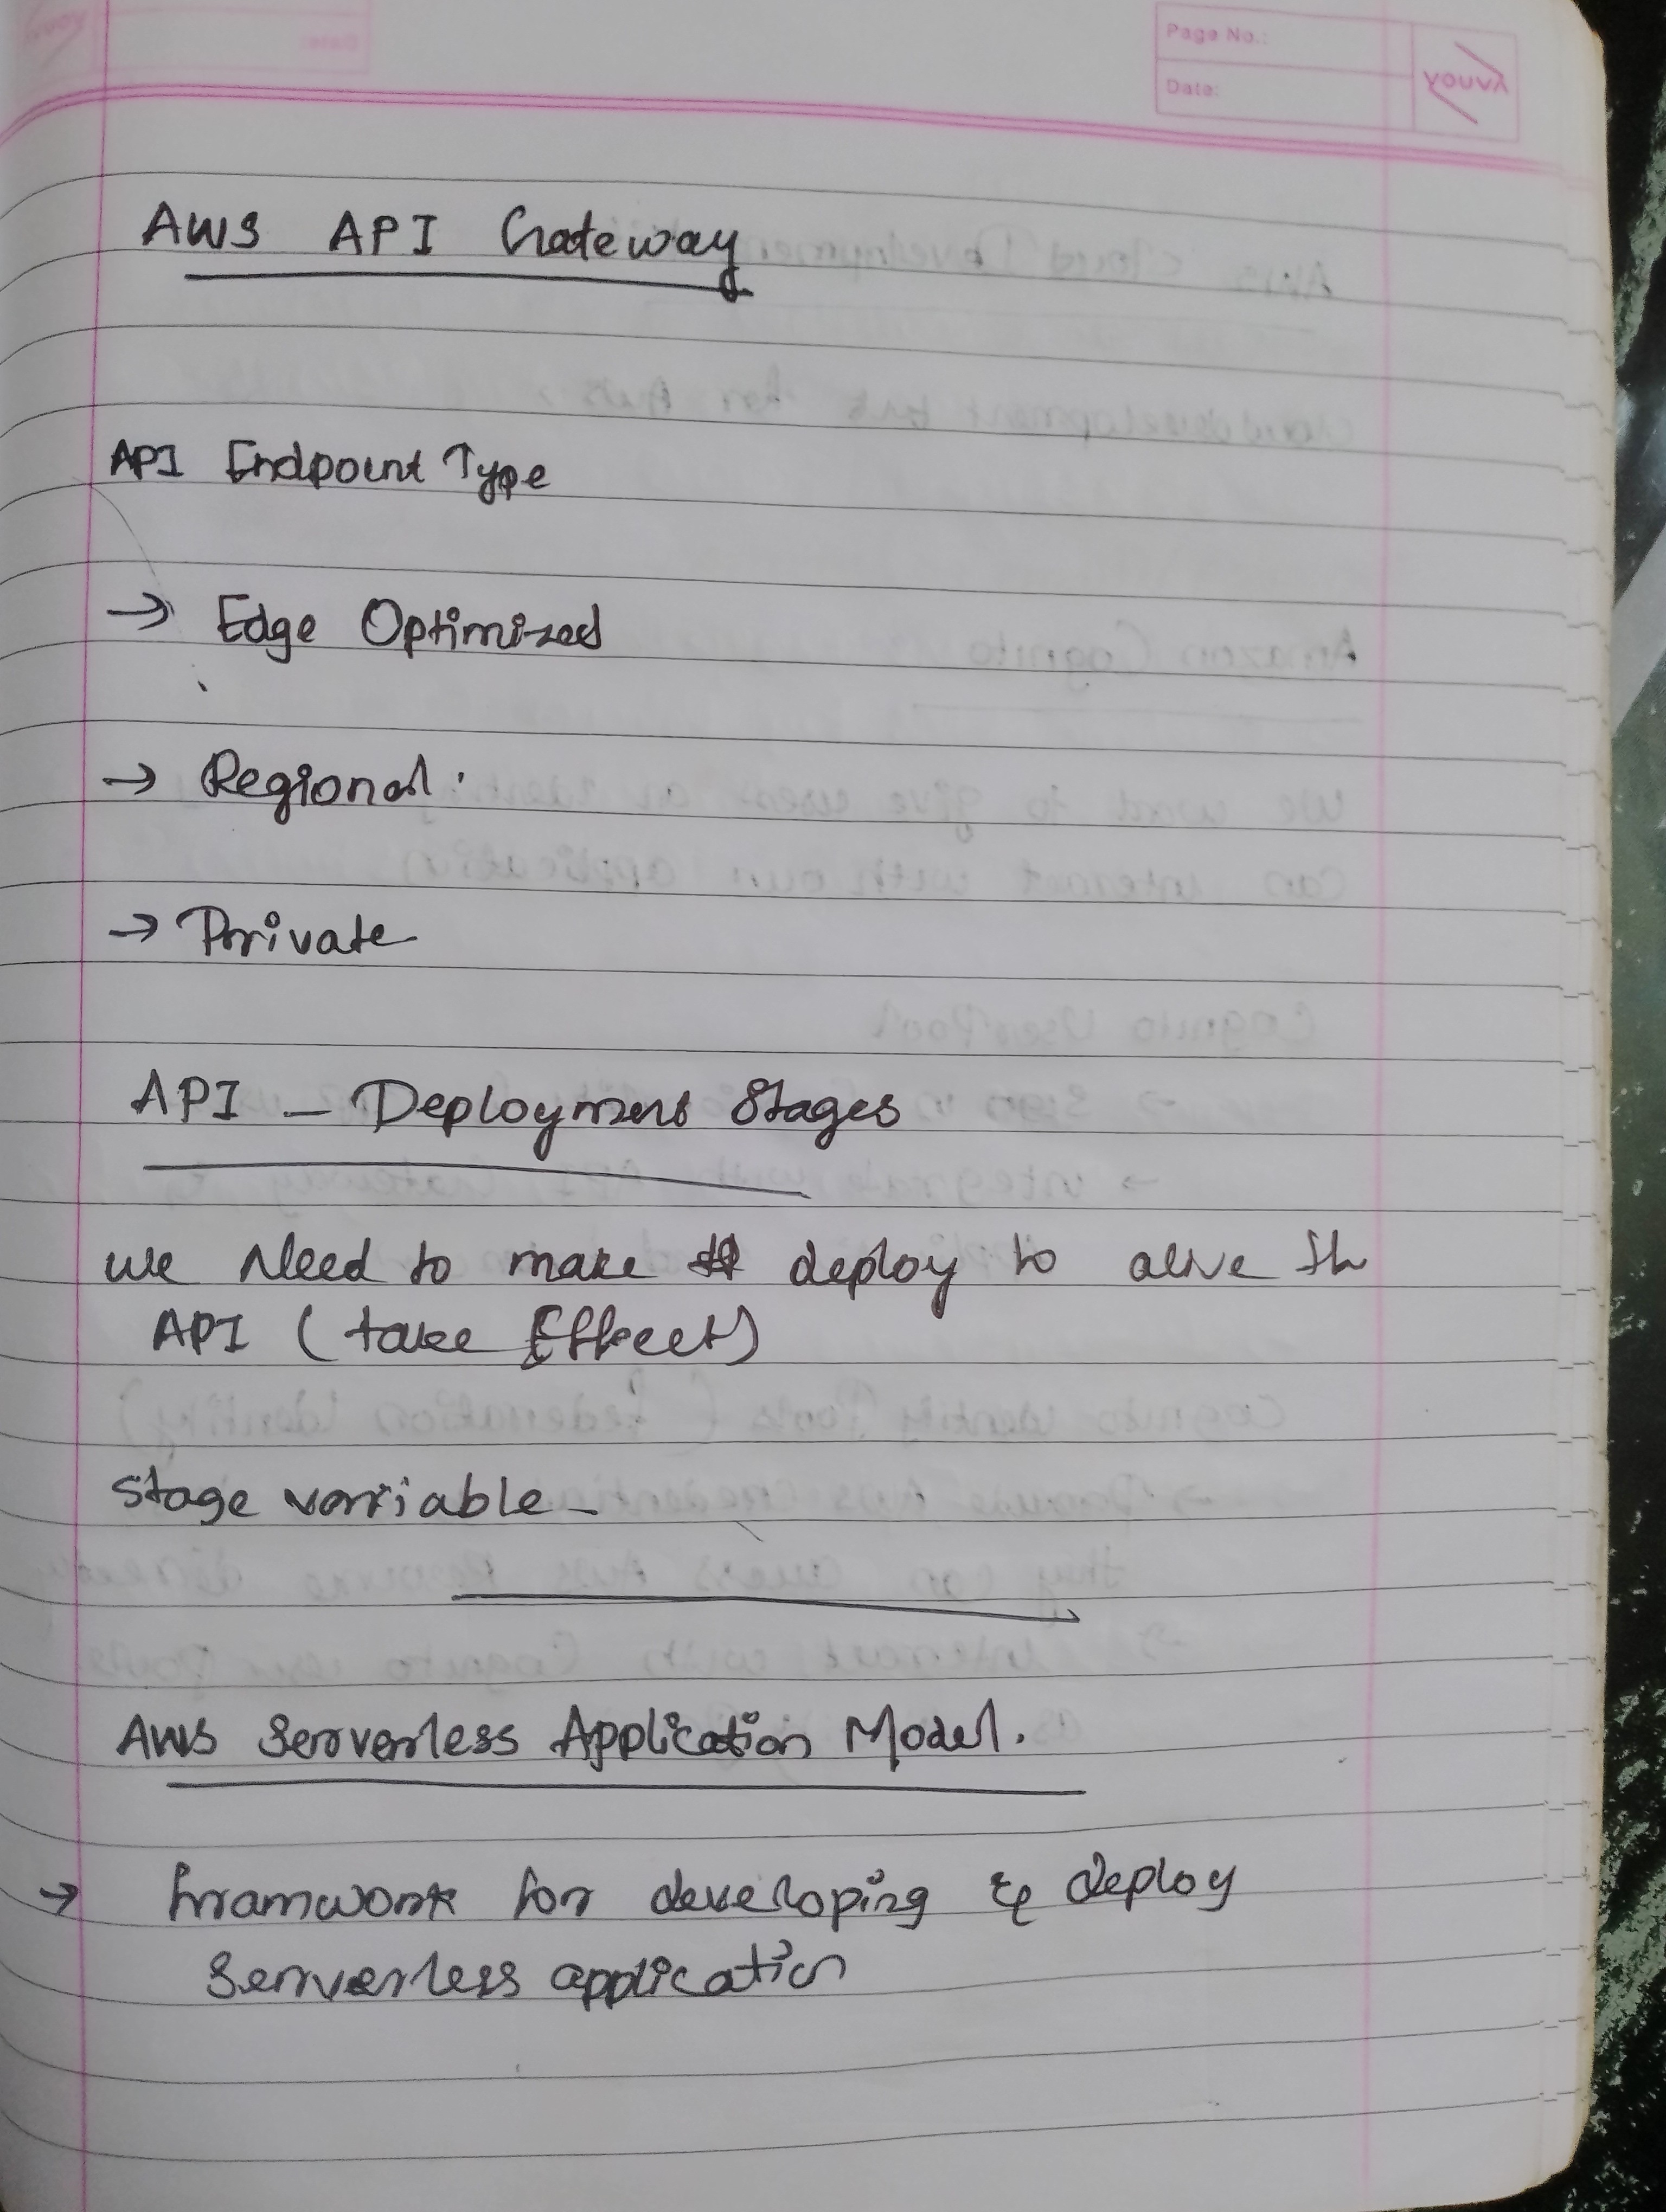 Page No.:
Date:
youva
AWS API Gateway
API Endpoint Type
→ Edge Optimized
→ Regional.
→ Private
API - Deployment Stages
we Need to make deploy to alive th
API (take Effect)
Stage variable -
AWS Serverless Application Model.
→ framwork for developing & deploy
Serverless application